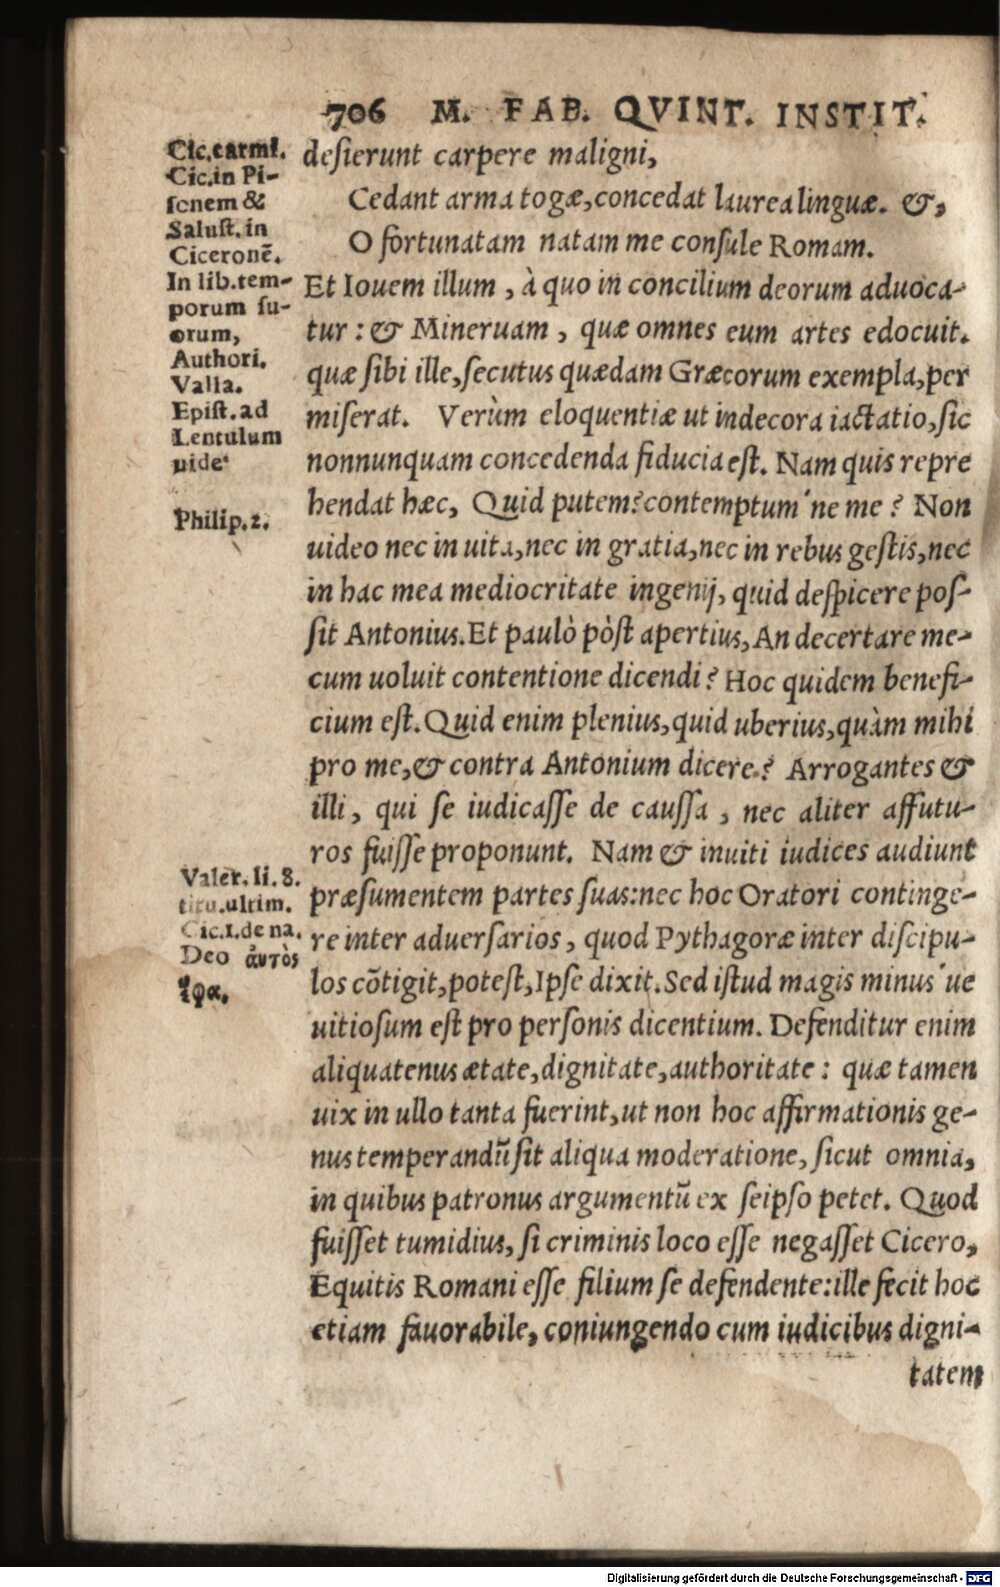 706 M. FAB. QVINT. INSTIT.
Cic.carmi.
Cic.in Pi-
sonem &
Salust.in
Ciceronē.
In lib.tem-
porum su-
orum,
Authori.
Valla.
Epist.ad
Lentulum
uide
Philip.2.
Valer.li.8.
titu.ultim.
Cic.1.de na.
Deo αὐτὸς
ἔφα.
desierunt carpere maligni,
Cedant arma togæ,concedat laurea linguæ. &,
O fortunatam natam me consule Romam.
Et Iouem illum , à quo in concilium deorum aduoca-
tur : & Mineruam , quæ omnes eum artes edocuit.
quæ sibi ille,secutus quædam Græcorum exempla,per
miserat. Verùm eloquentiæ ut indecora iactatio,sic
nonnunquam concedenda fiducia est. Nam quis repre
hendat hæc, Quid putem?contemptum'ne me ? Non
uideo nec in uita,nec in gratia,nec in rebus gestis,nec
in hac mea mediocritate ingenij, quid despicere pos-
sit Antonius.Et paulò pòst apertius,An decertare me-
cum uoluit contentione dicendi ? Hoc quidem benefi-
cium est.Quid enim plenius,quid uberius,quàm mihi
pro me,& contra Antonium dicere.? Arrogantes &
illi, qui se iudicasse de caussa , nec aliter affutu-
ros fuisse proponunt. Nam & inuiti iudices audiunt
præsumentem partes suas:nec hoc Oratori continge-
re inter aduersarios, quod Pythagoræ inter discipu-
los cōtigit,potest,Ipse dixit.Sed istud magis minus'ue
uitiosum est pro personis dicentium. Defenditur enim
aliquatenus ætate,dignitate,authoritate : quæ tamen
uix in ullo tanta fuerint,ut non hoc affirmationis ge-
nus temperandū sit aliqua moderatione, sicut omnia,
in quibus patronus argumentū ex seipso petet. Quod
fuisset tumidius, si criminis loco esse negasset Cicero,
Equitis Romani esse filium se defendente:ille fecit hoc
etiam fauorabile, coniungendo cum iudicibus digni-
tatem
Digitalisierung gefördert durch die Deutsche Forschungsgemeinschaft - DFG